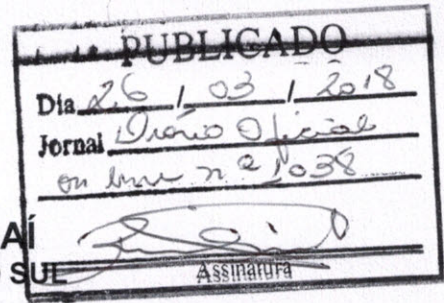 PUBLICADO
Dia 26 / 03 / 2018
Jornal Diário Oficial
on line nº 1038
AÍ
SUL
Assinatura